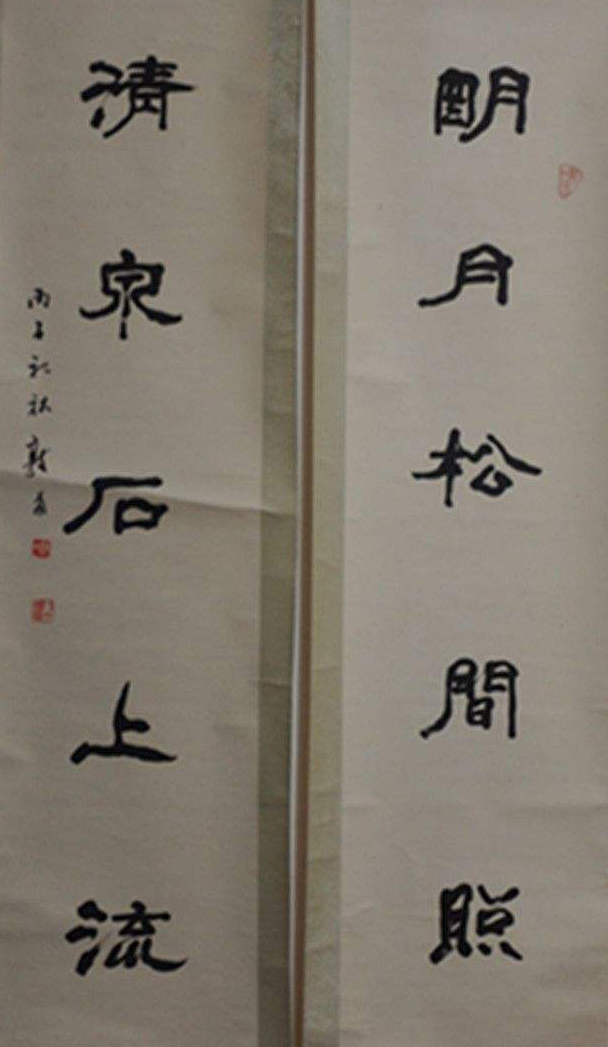 明月松間照
清泉石上流
丙子初秋